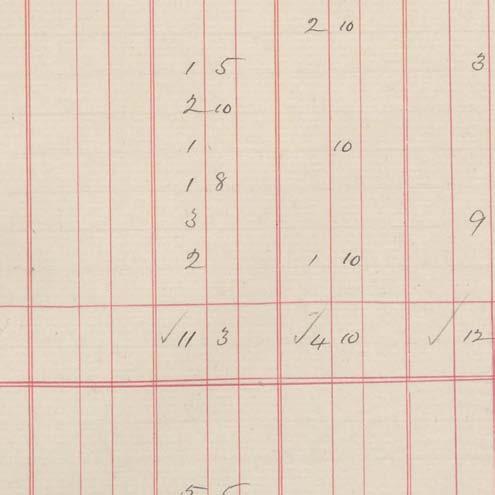 2 10
1 5 3
2 10
1 10
1 8
3 9
2 1 10
✓11 3 ✓4 10 ✓12
5 5